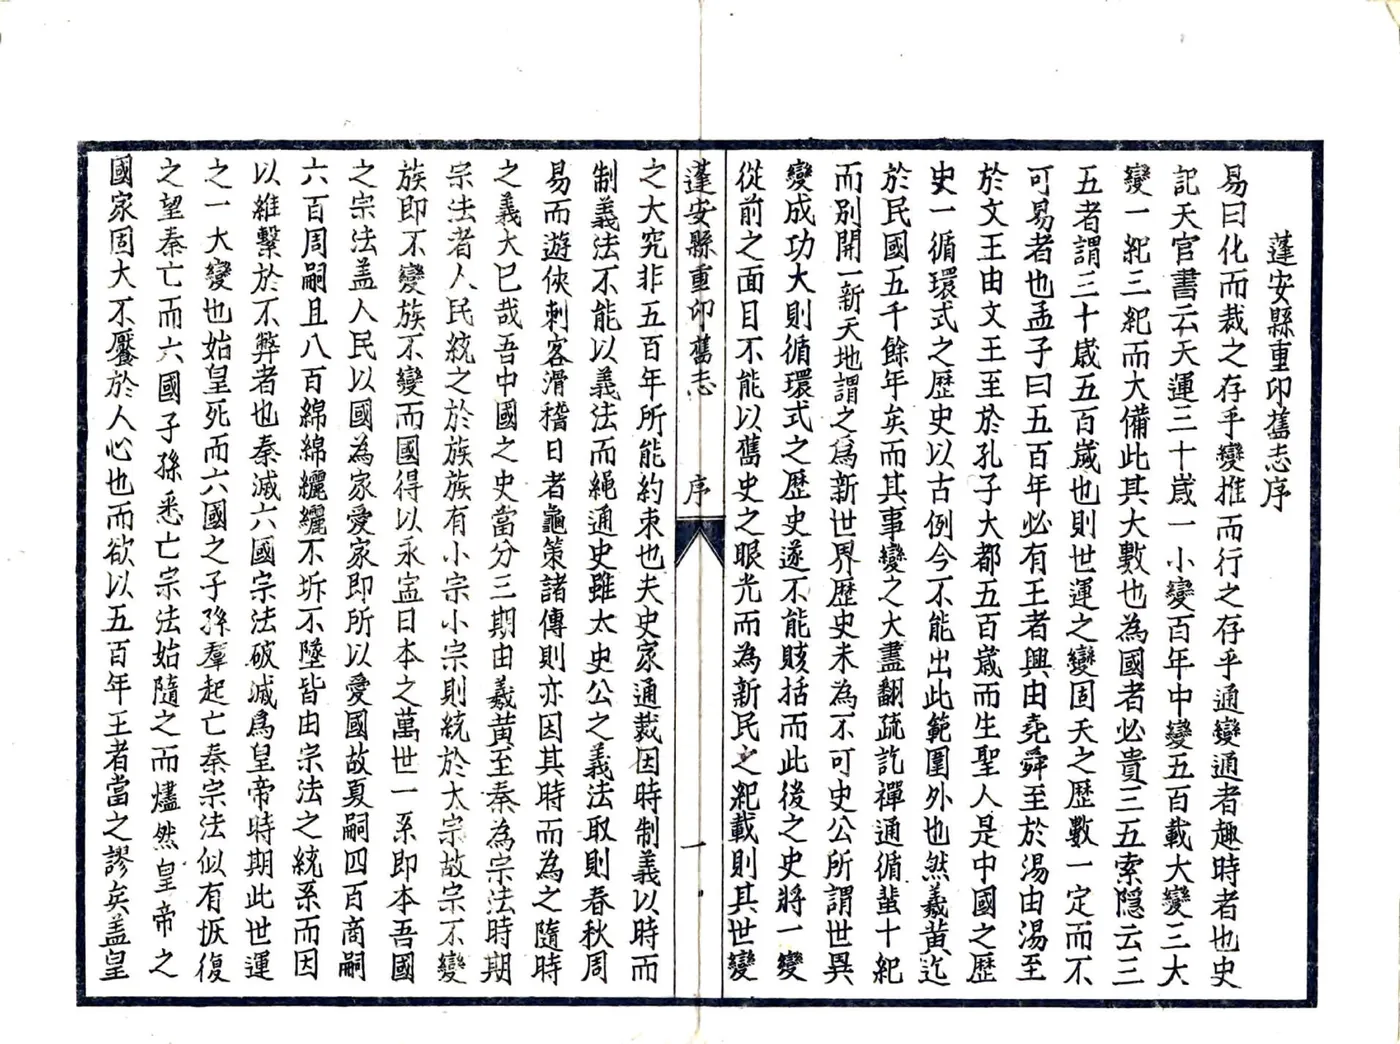 蓬安縣重印舊志序
易曰化而裁之存乎變推而行之存乎通變通者趣時者也史
記天官書云天運三十歲一小變百年中變五百載大變三大
變一紀三紀而大備此其大數也為國者必貴三五索隱云三
五者謂三十歲五百歲也則世運之變固天之歷數一定而不
可易者也孟子曰五百年必有王者興由堯舜至於湯由湯至
於文王由文王至於孔子大都五百歲而生聖人是中國之歷
史一循環式之歷史以古例今不能出此範圍外也然羲黄迄
於民國五千餘年矣而其事變之大盡翻疏訖禪通循蜚十紀
而别開一新天地謂之爲新世界歷史未為不可史公所謂世異
變成功大則循環式之歷史遂不能賅括而此後之史將一變
從前之面目不能以舊史之眼光而為新民之紀載則其世變
蓬安縣重印舊志 序 一
之大究非五百年所能約束也夫史家通裁因時制義以時而
制義法不能以義法而繩通史雖太史公之義法取則春秋周
易而遊俠刺客滑稽日者龜策諸傳則亦因其時而為之隨時
之義大已哉吾中國之史當分三期由羲黄至秦為宗法時期
宗法者人民統之於族族有小宗小宗則統於大宗故宗不變
族即不變族不變而國得以永寍日本之萬世一系即本吾國
之宗法盖人民以國為家愛家即所以愛國故夏嗣四百商嗣
六百周嗣且八百綿綿纚纚不坼不墜皆由宗法之統系而因
以維繫於不弊者也秦滅六國宗法破滅爲皇帝時期此世運
之一大變也始皇死而六國之子孫羣起亡秦宗法似有恢復
之望秦亡而六國子孫悉亡宗法始隨之而燼然皇帝之
國家固大不饜於人心也而欲以五百年王者當之謬矣盖皇